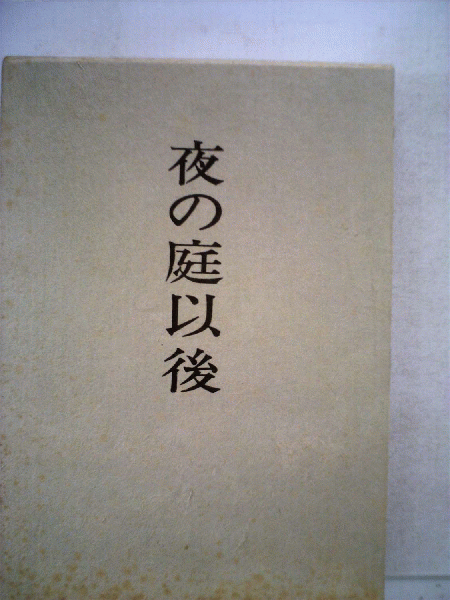 夜の庭以後